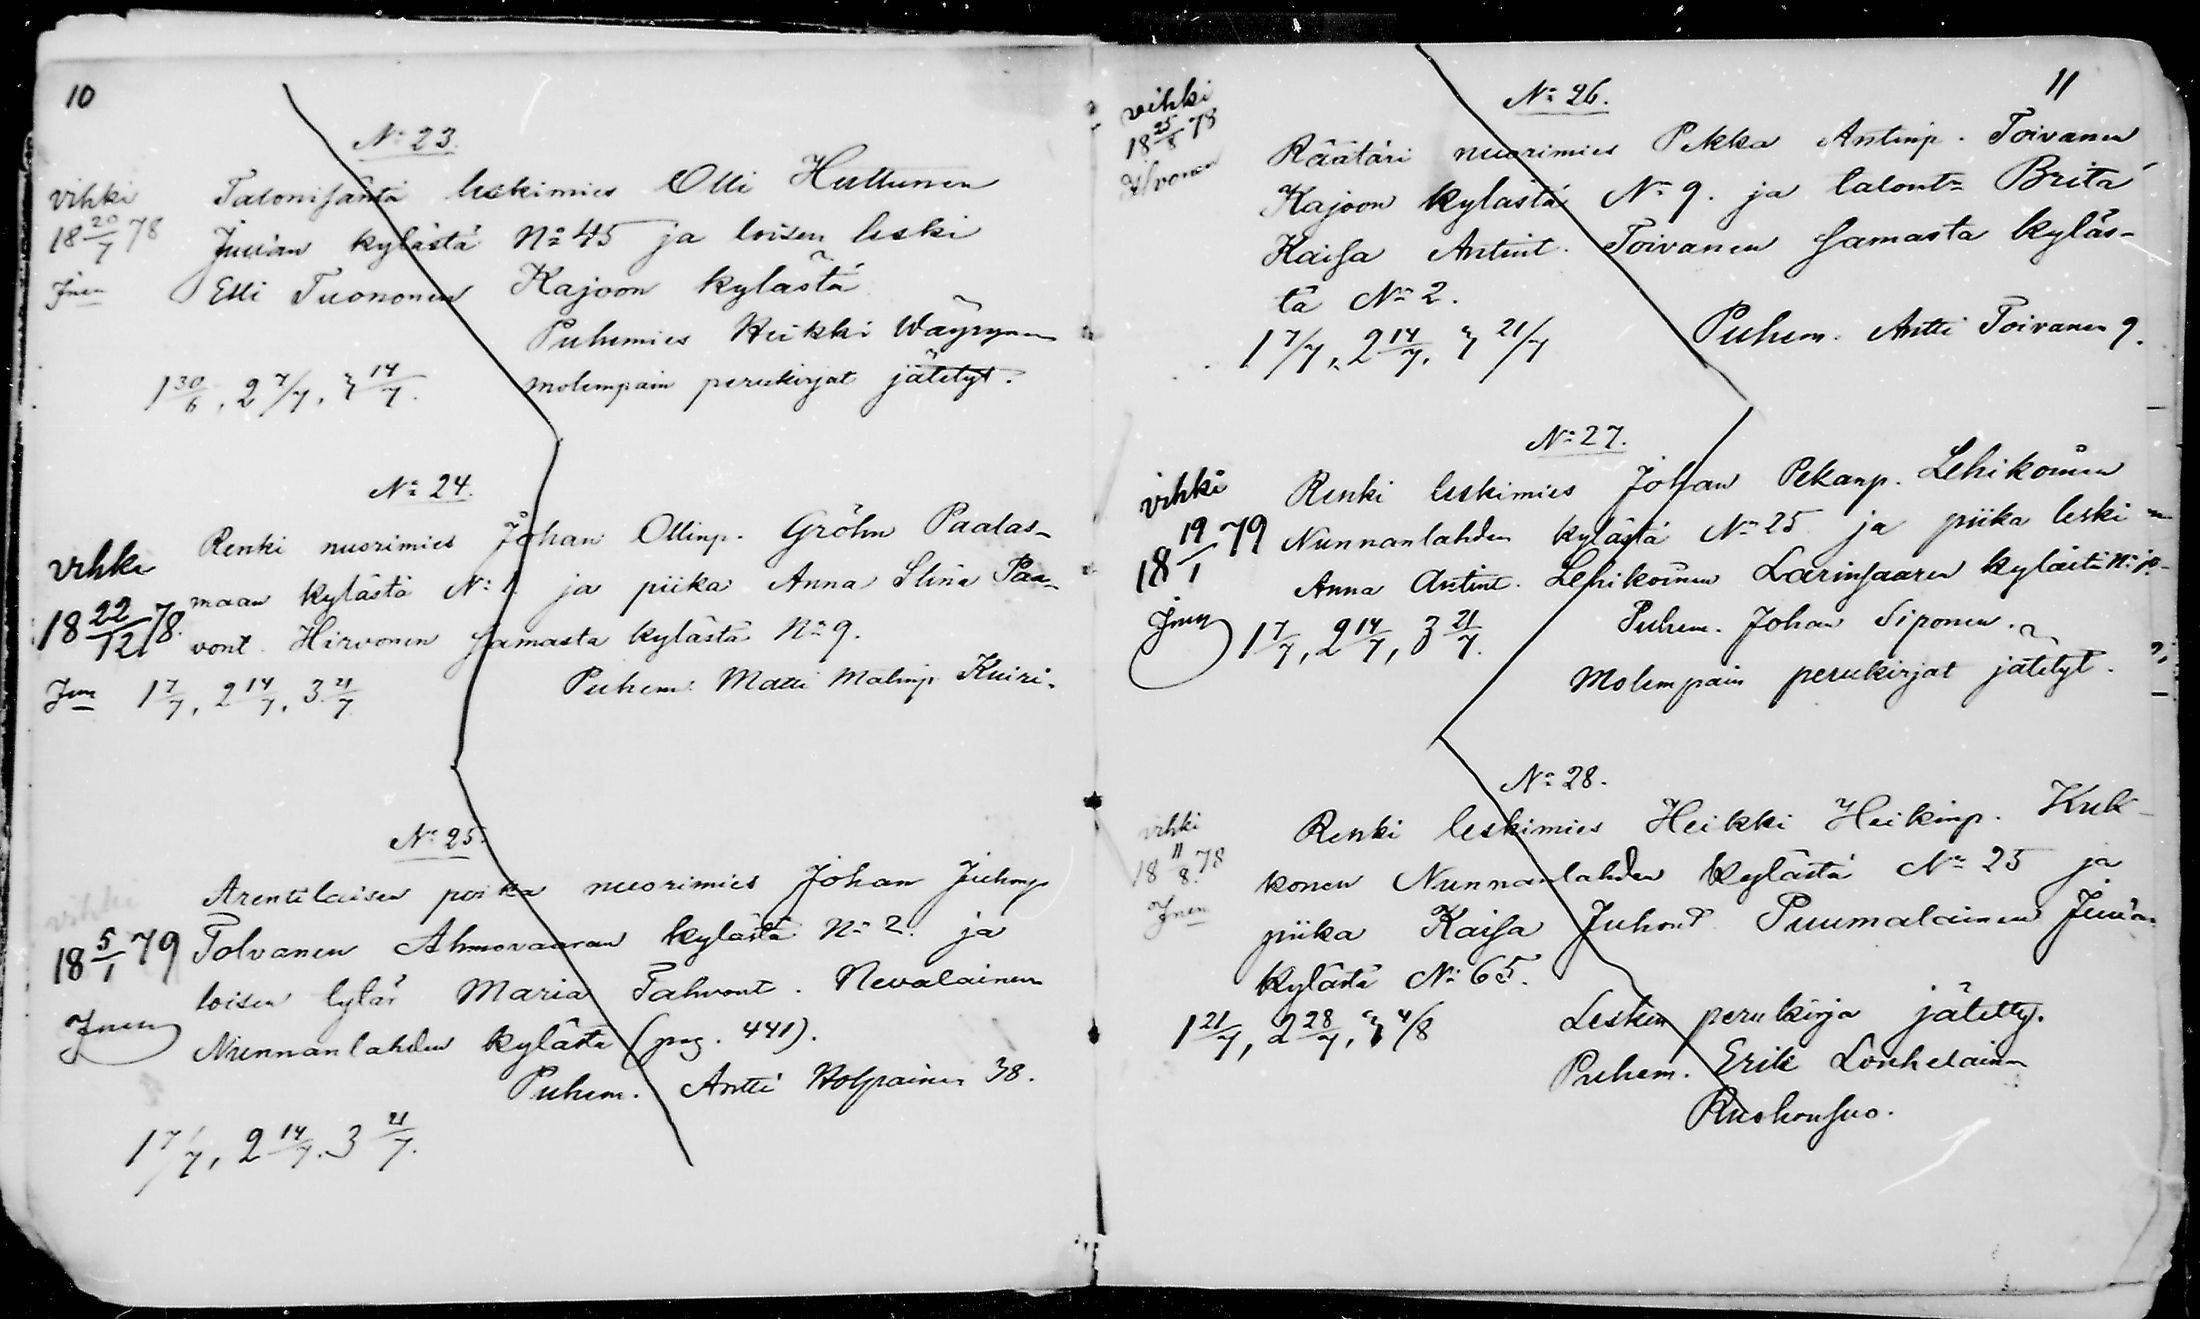 10
No 23.
vihki
18 20/7 78
Jnen
Talonisäntä leskimies Olli Huttunen
Juuan kylästä No 45 ja loisen leski
Elli Tuononen Kajoon kylästä
Puhemies Heikki Wäyrynen
1 30/6, 2 7/7, 3 14/7. molempain perukirjat jätetyt.
No 24.
vihki
18 22/12 78.
Jnen
Renki nuorimies Johan Ollinp. Gröhn Paalas-
maan kylästä No 1 ja piika Anna Stina Paa-
vont. Hirvonen samasta kylästä No 9.
1 7/7, 2 14/7, 3 21/7 Puhem. Matti Matinp. Kuiri.
No 25.
vihki
18 5/1 79
Jnen
Arentilaisen poika nuorimies Johan Juhonp
Tolvanen Ahmovaaran kylästä No 2. ja
loisen tytär Maria Pahvont. Nevalainen
Nunnanlahden kylästä (pag. 441).
Puhem. Antti Holpainen 38.
1 7/7, 2 14/7. 3 21/7.
11
No 26.
vihki
18 25/8 78
Räätäri nuorimies Pekka Antinp. Toivanen
Kajoon kylästä No 9. ja talont= Brita
Kaisa Antint. Toivanen samasta kyläs-
tä No 2.
1 7/7, 2 14/7, 3 21/7 Puhem. Antti Toivanen 9.
No 27.
vihki
18 19/1 79
Jnen
Renki leskimies Johan Pekanp. Lehikoinen
Nunnanlahden kylästä No 25 ja piika leski
Anna Antint. Lehikoinen Larinsaaren kylästä No 10
1 7/7, 2 14/7, 3 21/7. Puhem. Johan Siponen.
Molempain perukirjat jätetyt.
No 28.
vihki
18 11/8 78
Jnen
Renki leskimies Heikki Heikinp. Kuk-
konen Nunnanlahden kylästä No 25 ja
piika Kaisa Juhont. Puumalainen Juuan
kylästä No 65.
1 21/7, 2 28/7, 3 4/8 Lesken perukirja jätetty.
Puhem. Erik Lonhelainen
Ruokonsuo.